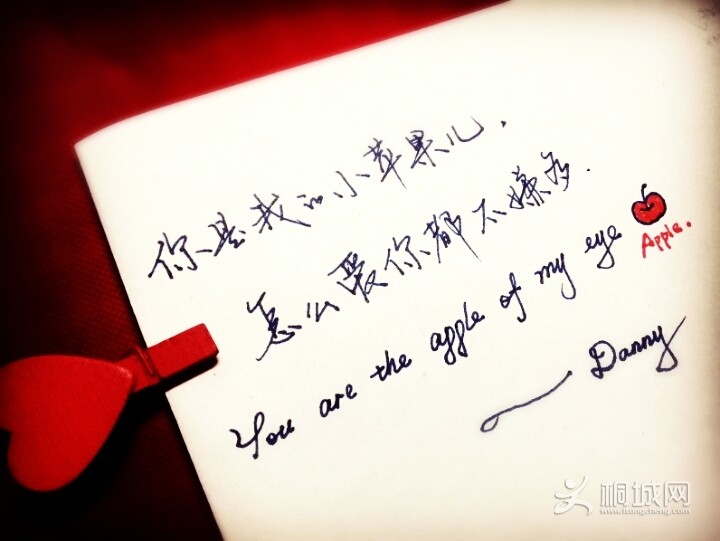 你是我的小苹果儿.
怎么爱你都不嫌多.
You are the apple of my eye
Apple.
— Danny
桐城网
www.itongcheng.com